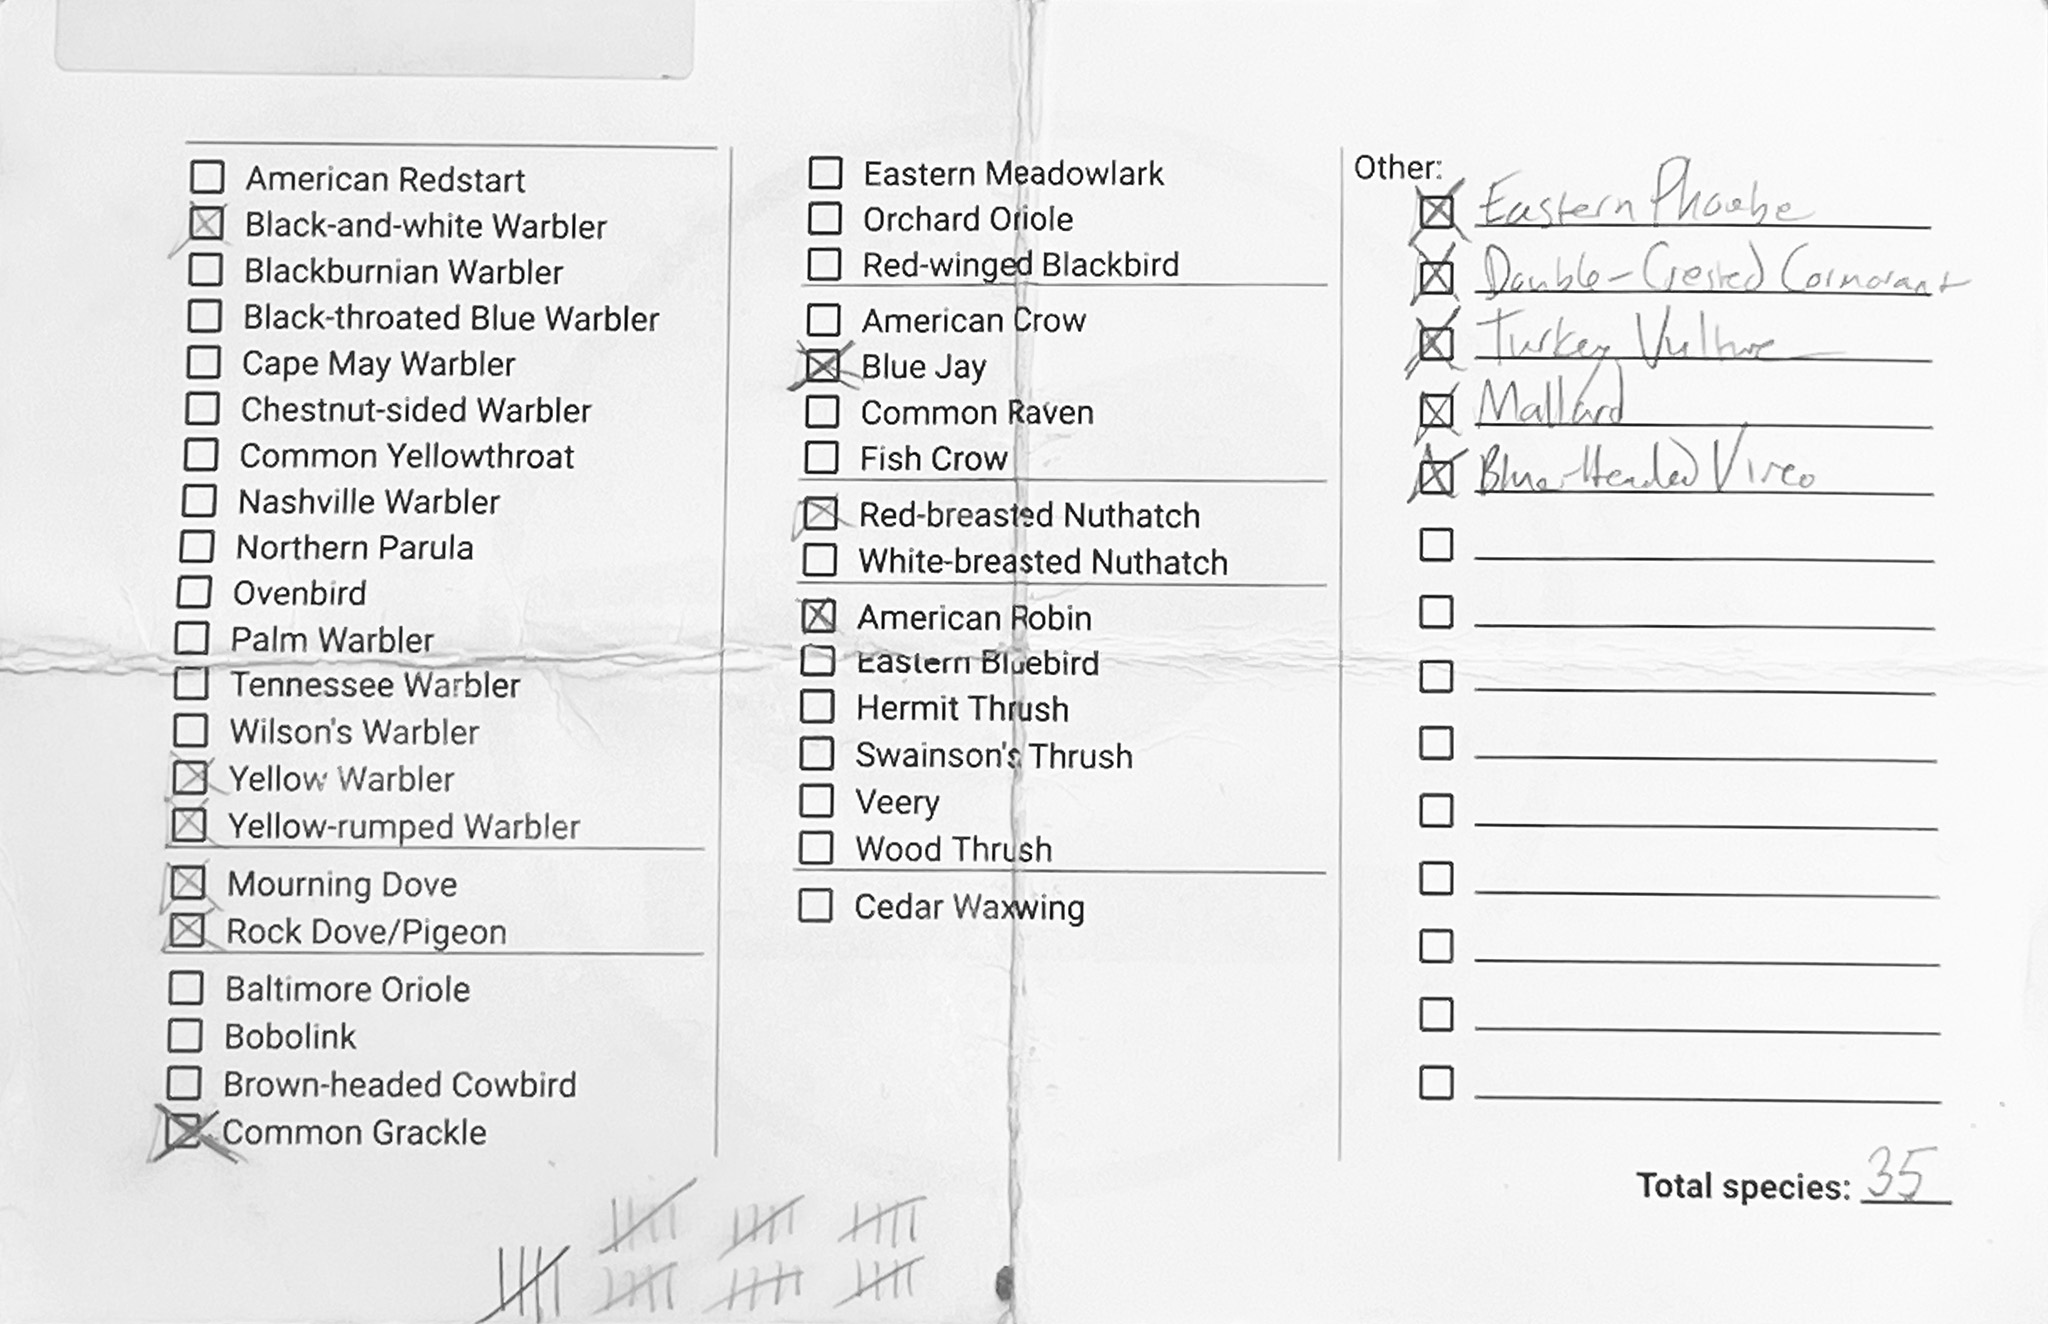 American Redstart
Black-and-white Warbler
Blackburnian Warbler
Black-throated Blue Warbler
Cape May Warbler
Chestnut-sided Warbler
Common Yellowthroat
Nashville Warbler
Northern Parula
Ovenbird
Palm Warbler
Tennessee Warbler
Wilson's Warbler
Yellow Warbler
Yellow-rumped Warbler
Mourning Dove
Rock Dove/Pigeon
Baltimore Oriole
Bobolink
Brown-headed Cowbird
Common Grackle
Eastern Meadowlark
Orchard Oriole
Red-winged Blackbird
American Crow
Blue Jay
Common Raven
Fish Crow
Red-breasted Nuthatch
White-breasted Nuthatch
American Robin
Eastern Bluebird
Hermit Thrush
Swainson's Thrush
Veery
Wood Thrush
Cedar Waxwing
Other:
Eastern Phoebe
Double-Crested Cormorant
Turkey Vulture
Mallard
Blue-Headed Vireo
Total species: 35